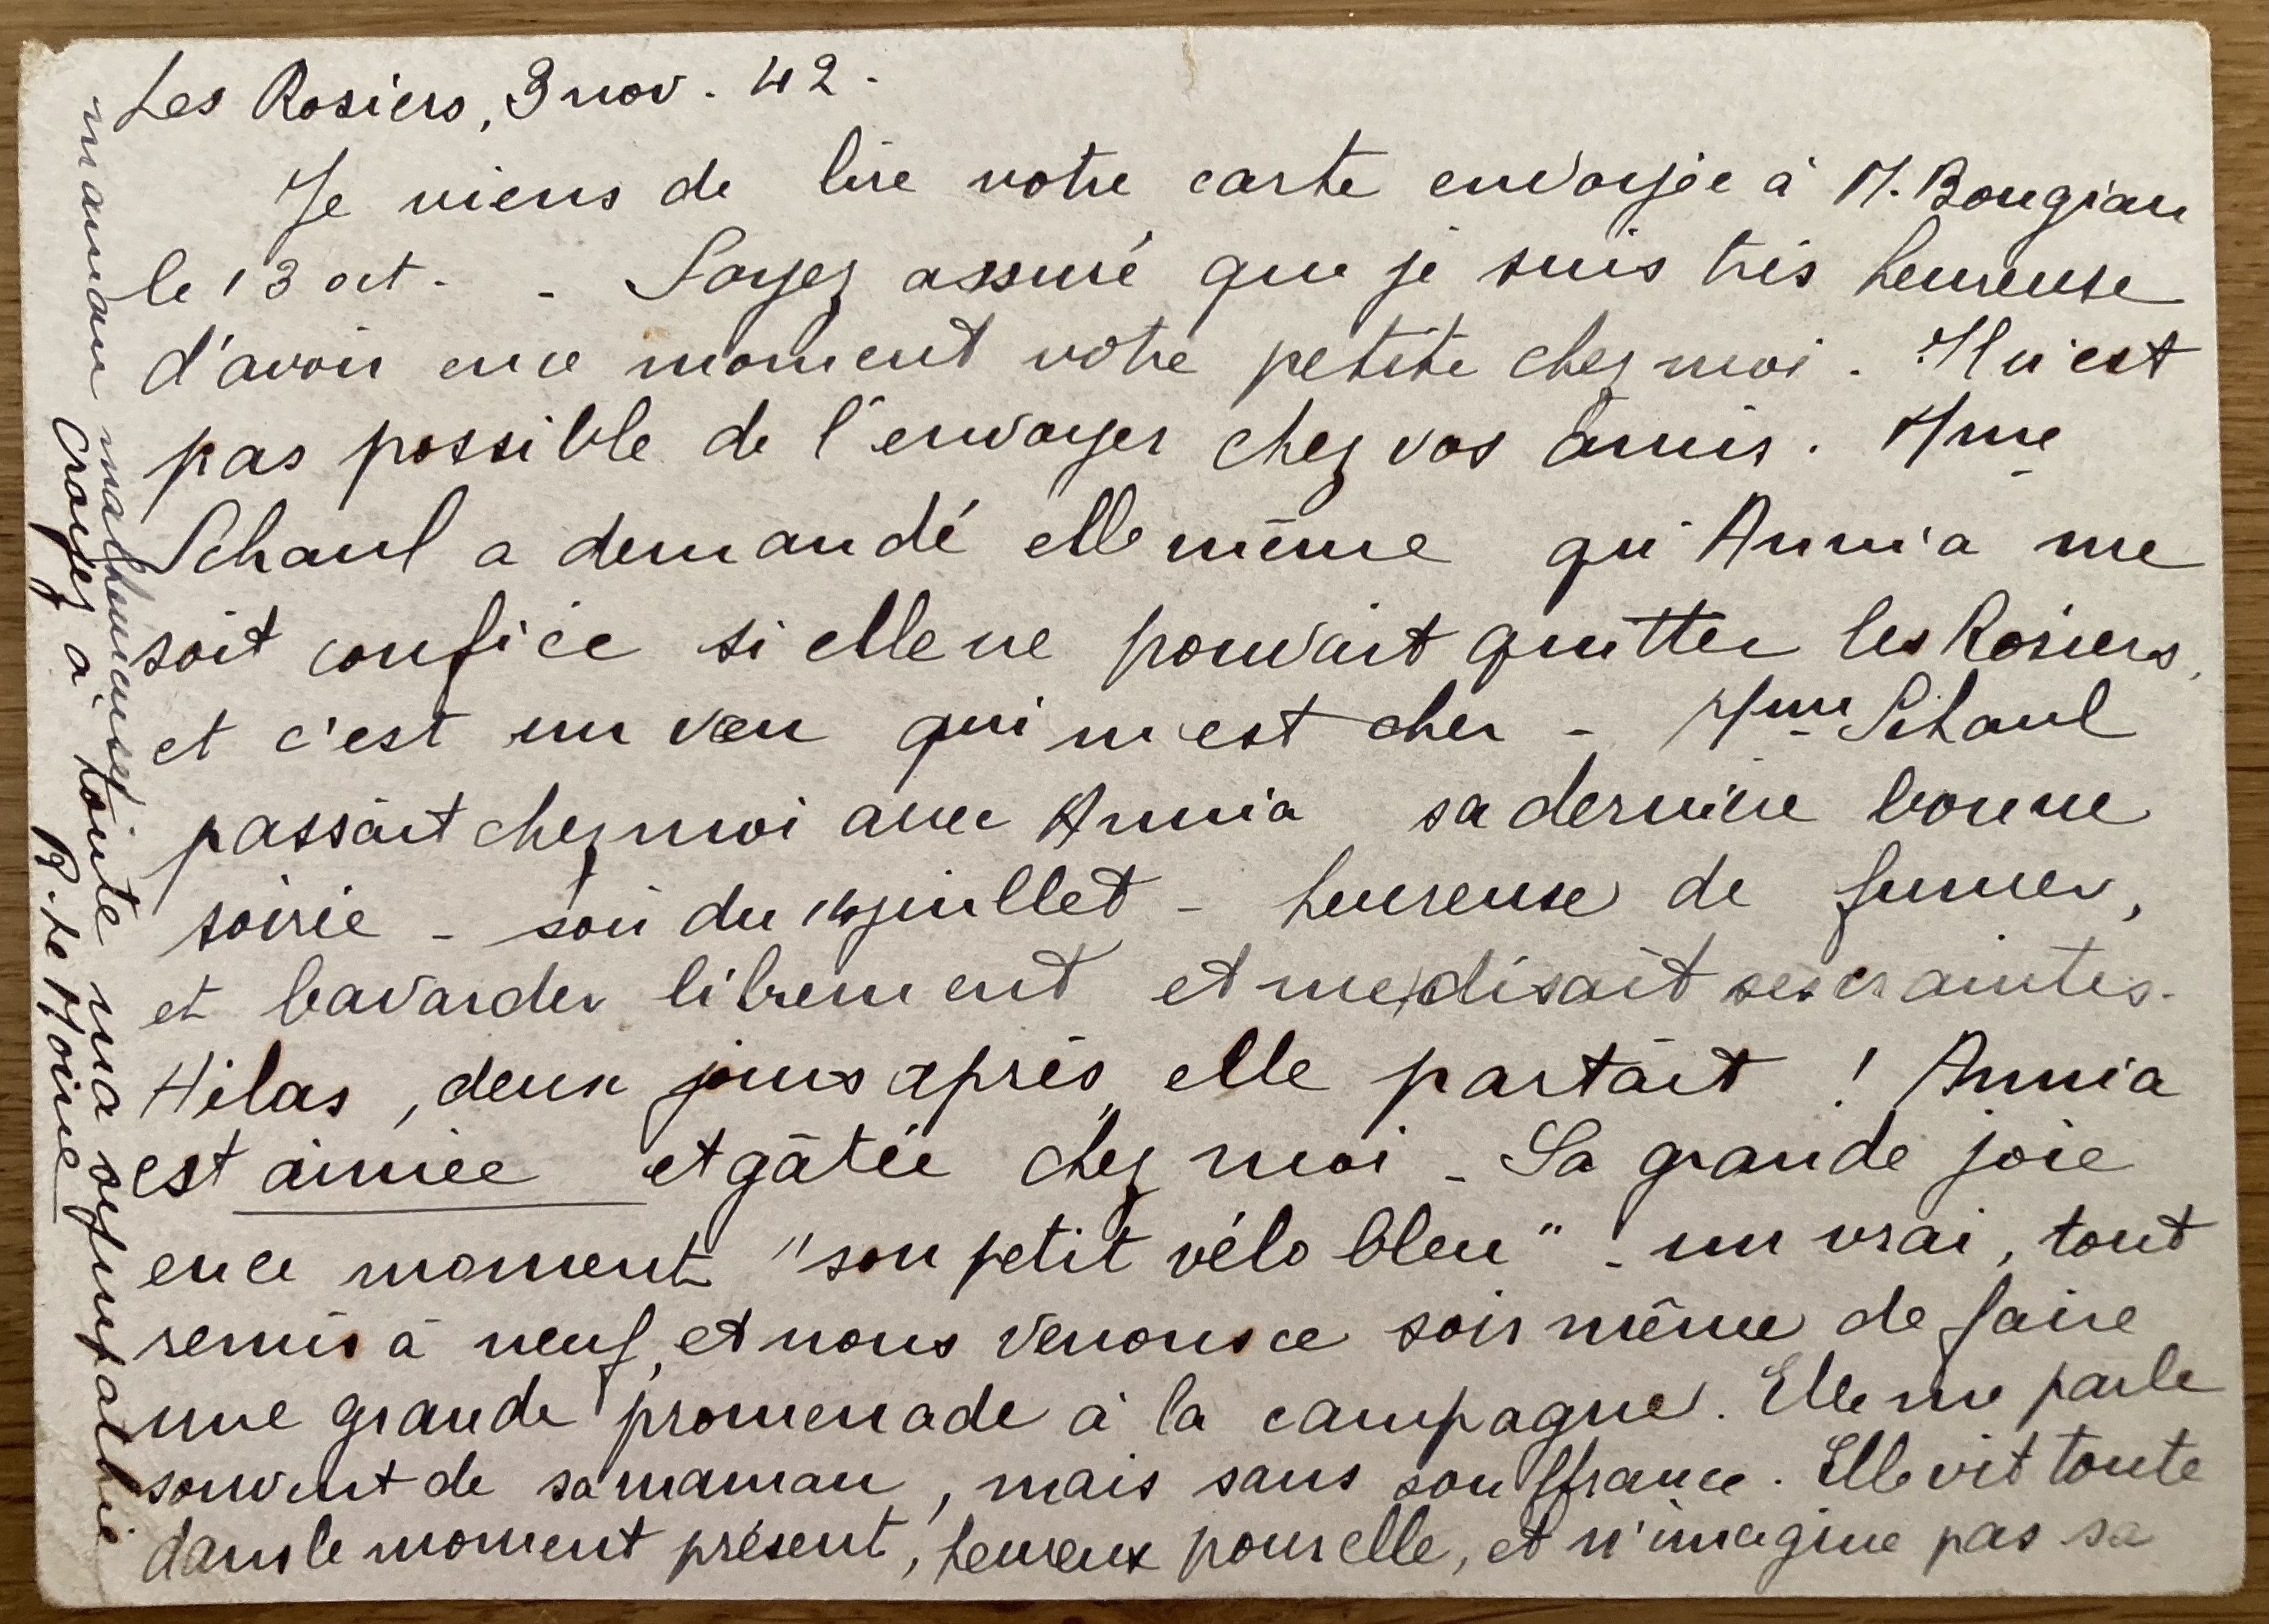 Les Rosiers, 3 nov. 42.
Je viens de lire votre carte envoyée à M. Bougian
le 13 oct. - Soyez assuré que je suis très heureuse
d'avoir en ce moment votre petite chez moi. Il n'est
pas possible de l'envoyer chez vos amis. Mme
Schaul a demandé elle même qu'Annia me
soit confiée si elle ne pouvait quitter les Rosiers,
et c'est un vœu qui m'est cher - Mme Schaul
passait chez moi avec Annia sa dernière bonne
soirée - soir du 14 juillet - heureuse de fumer,
et bavarder librement et me disait ses craintes.
Hélas, deux jours après, elle partait ! Annia
est aimée et gâtée chez moi - Sa grande joie
en ce moment "son petit vélo bleu" - un vrai, tout
remis à neuf, et nous venons ce soir même de faire
une grande promenade à la campagne. Elle me parle
souvent de sa maman, mais sans souffrance. Elle vit toute
dans le moment présent, heureux pour elle, et n'imagine pas sa
maman malheureuse.
Croyez à toute ma sympathie
R. Le Moine